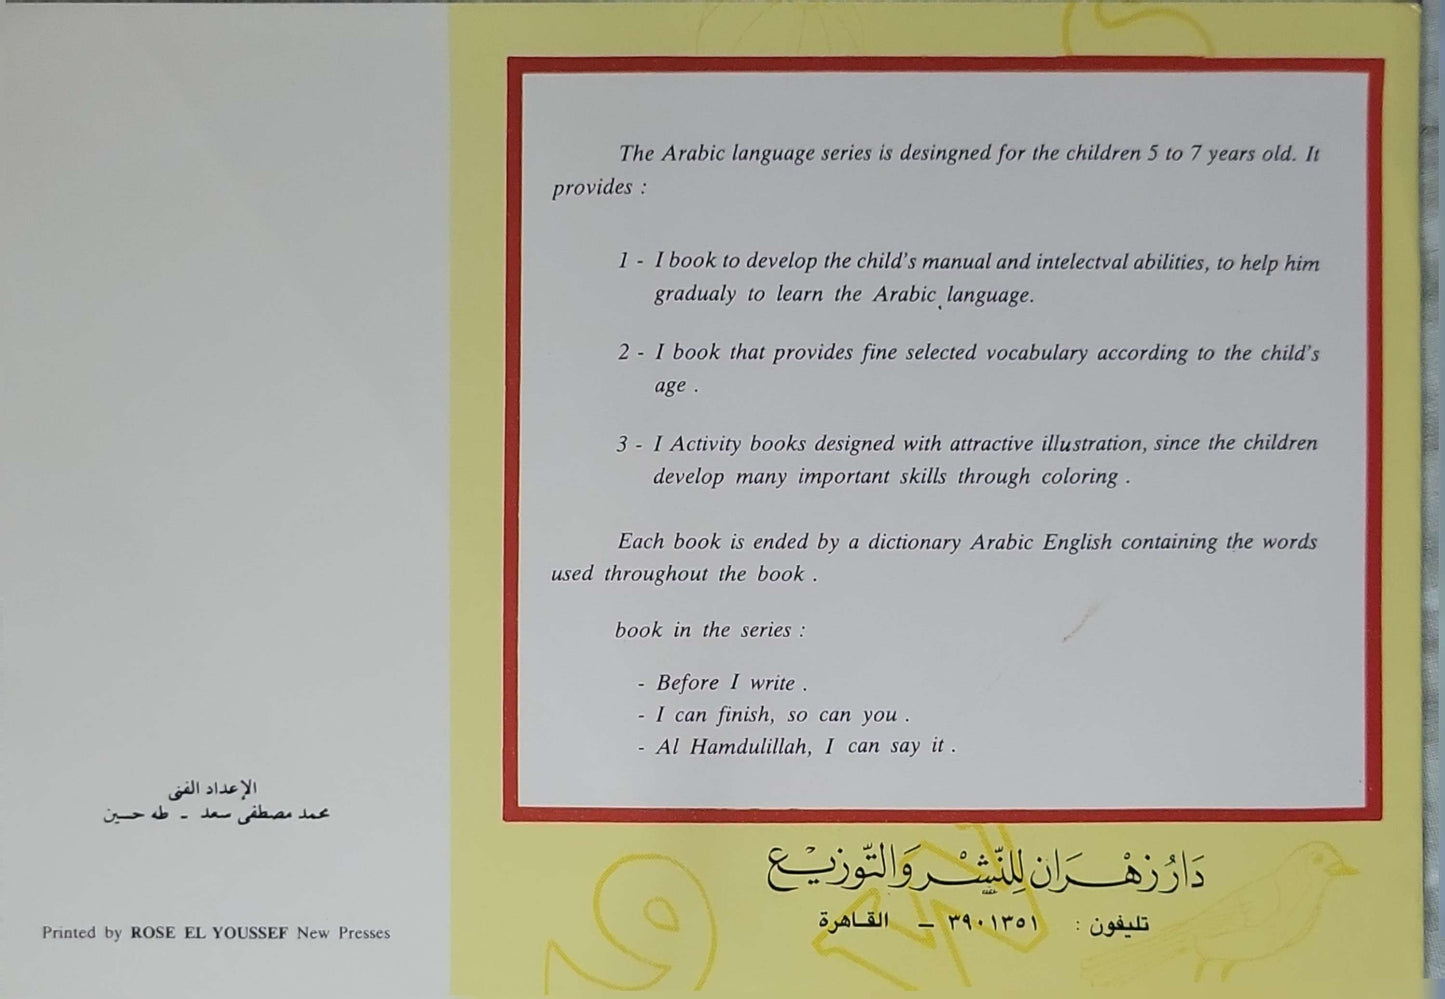 الإعداد الفنى
محمد مصطفى سعد - طه حسين
Printed by ROSE EL YOUSSEF New Presses
The Arabic language series is desingned for the children 5 to 7 years old. It
provides :
1 - I book to develop the child's manual and intelectval abilities, to help him
gradualy to learn the Arabic language.
2 - I book that provides fine selected vocabulary according to the child's
age .
3 - I Activity books designed with attractive illustration, since the children
develop many important skills through coloring .
Each book is ended by a dictionary Arabic English containing the words
used throughout the book .
book in the series :
- Before I write .
- I can finish, so can you .
- Al Hamdulillah, I can say it .
دَارُ زهْرَان لِلنّشِرْ وَالتّوزيع
تليفون : ٣٩٠١٣٥١ - القاهرة